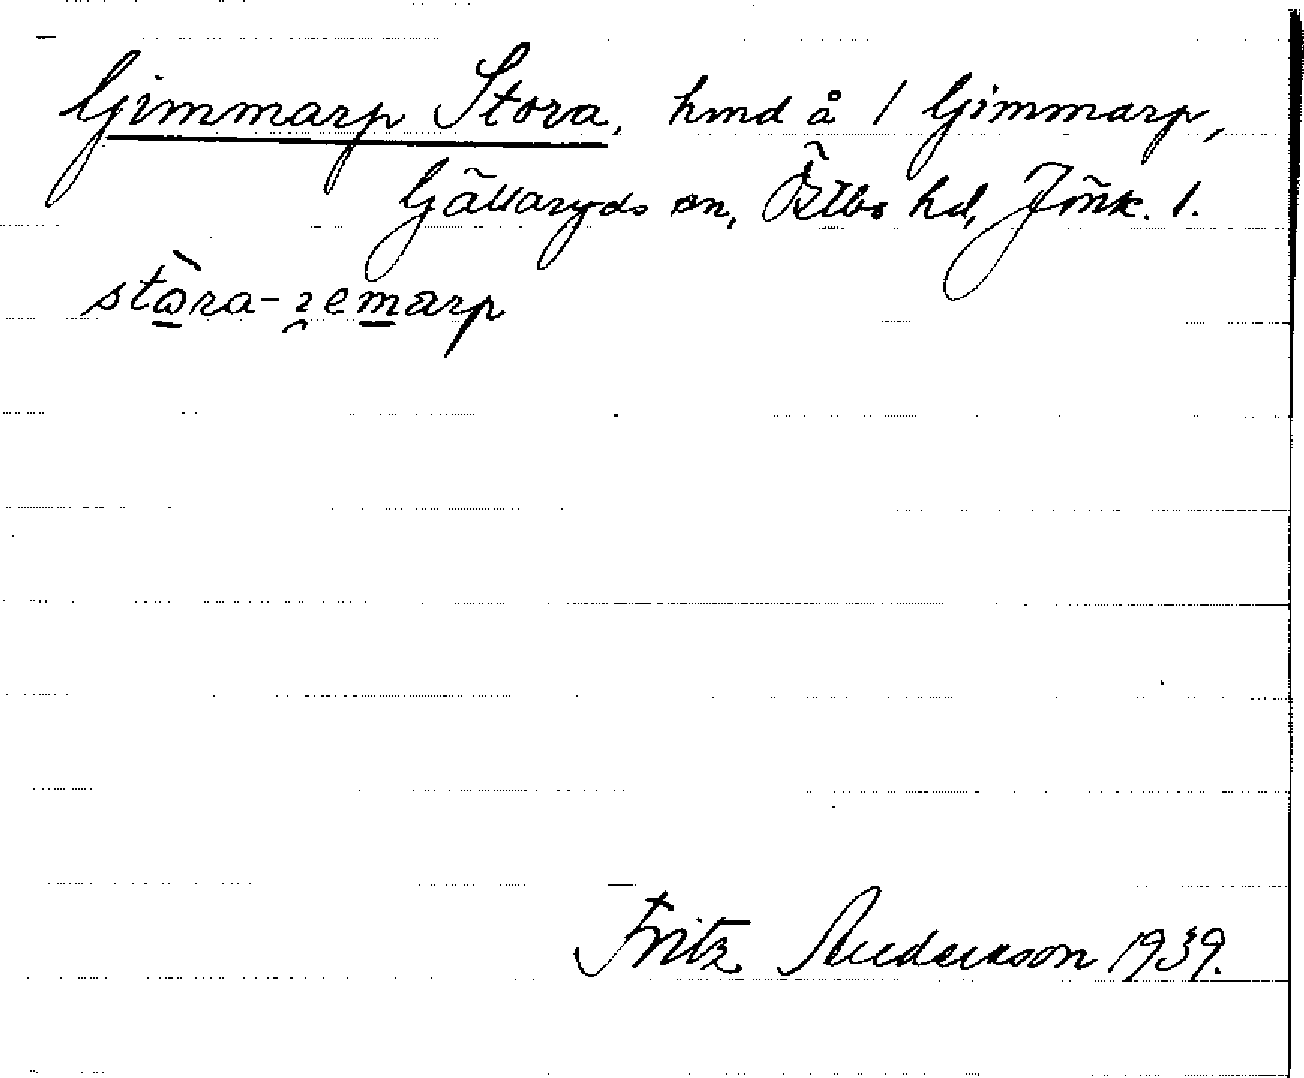 Gimmarp Stora, hmd å 1 Gimmarp,
Gällaryds sn, Östbo hd, Jönk. l.
stòra-ɿemarp
Fritz Andersson 1939.